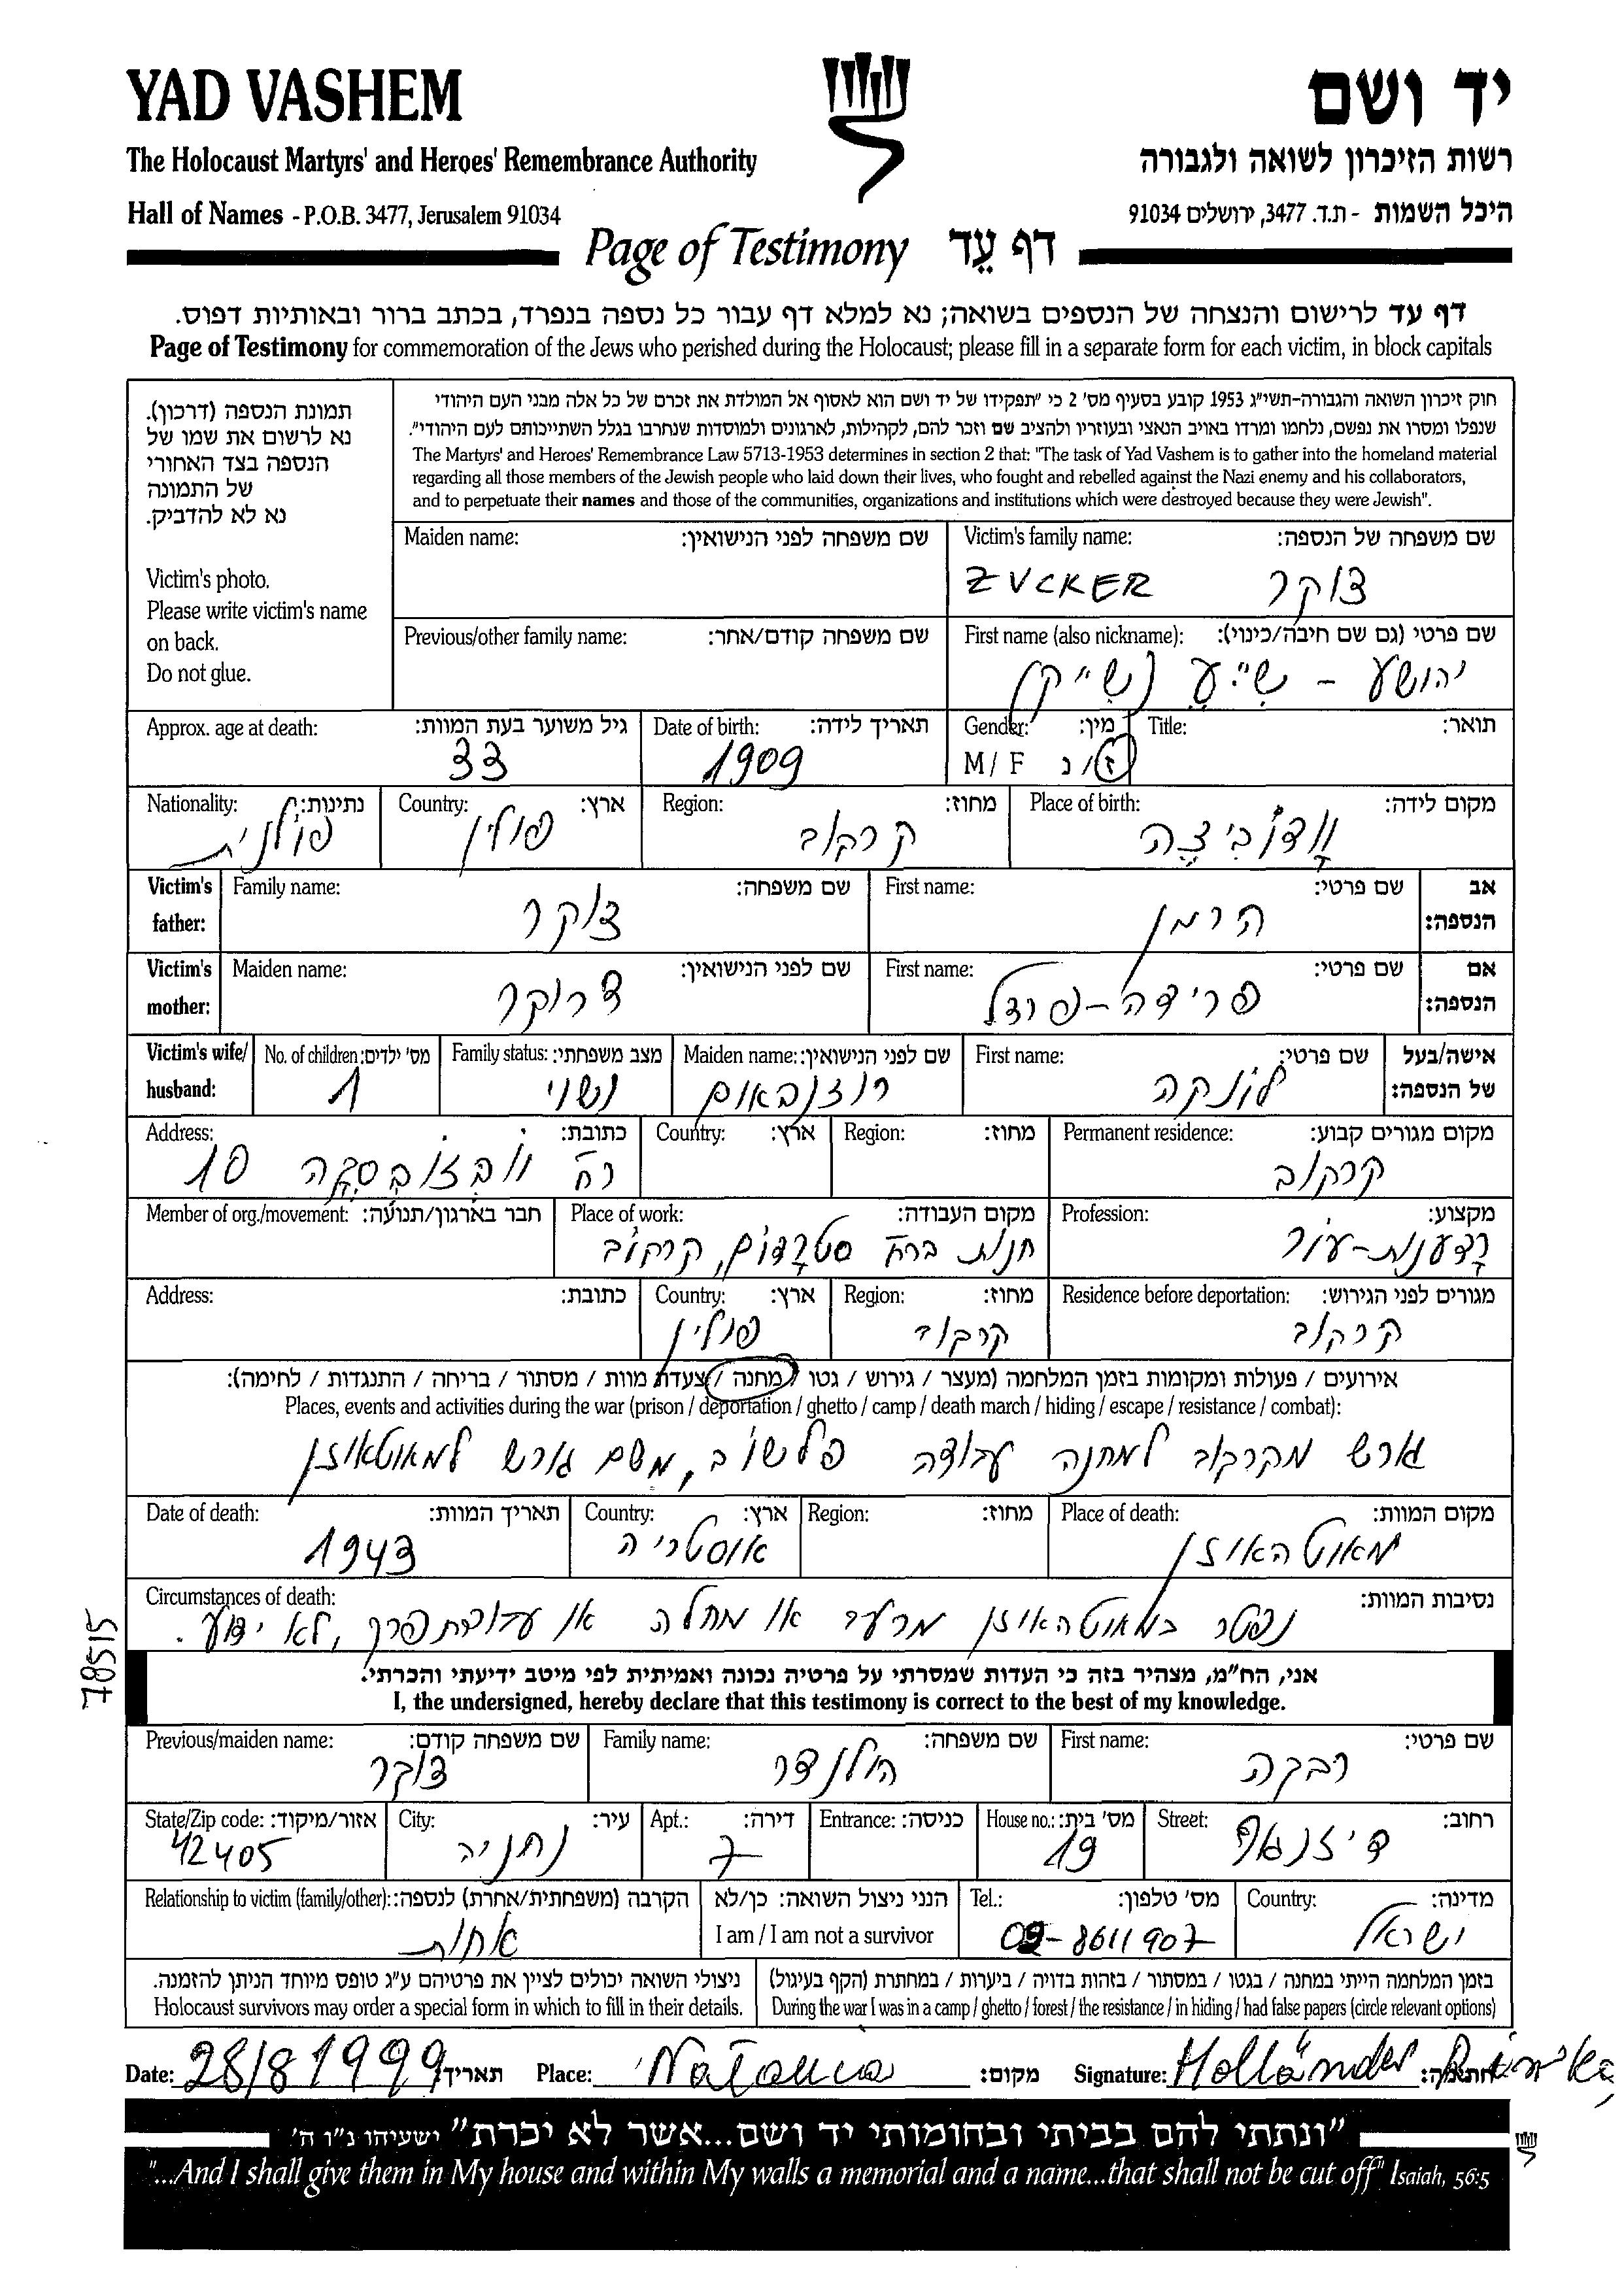 YAD VASHEM יד ושם
The Holocaust Martyrs' and Heroes' Remembrance Authority רשות הזיכרון לשואה ולגבורה
Hall of Names - P.O.B. 3477, Jerusalem 91034 היכל השמות - ת.ד. 3477, ירושלים 91034
Page of Testimony דף עֵד
דף עד לרישום והנצחה של הנספים בשואה; נא למלא דף עבור כל נספה בנפרד, בכתב ברור ובאותיות דפוס.
Page of Testimony for commemoration of the Jews who perished during the Holocaust; please fill in a separate form for each victim, in block capitals
תמונת הנספה (דרכון).
נא לרשום את שמו של
הנספה בצד האחורי
של התמונה
נא לא להדביק.
Victim's photo.
Please write victim's name
on back.
Do not glue.
חוק זיכרון השואה והגבורה-תשי"ג 1953 קובע בסעיף מס' 2 כי "תפקידו של יד ושם הוא לאסוף אל המולדת את זכרם של כל אלה מבני העם היהודי
שנפלו ומסרו את נפשם, נלחמו ומרדו באויב הנאצי ובעוזריו ולהציב שם וזכר להם, לקהילות, לארגונים ולמוסדות שנחרבו בגלל השתייכותם לעם היהודי".
The Martyrs' and Heroes' Remembrance Law 5713-1953 determines in section 2 that: "The task of Yad Vashem is to gather into the homeland material
regarding all those members of the Jewish people who laid down their lives, who fought and rebelled against the Nazi enemy and his collaborators,
and to perpetuate their names and those of the communities, organizations and institutions which were destroyed because they were Jewish".
Victim's family name: שם משפחה של הנספה: Maiden name: שם משפחה לפני הנישואין:
ZUCKER צוקר
First name (also nickname): שם פרטי (גם שם חיבה/כינוי): Previous/other family name: שם משפחה קודם/אחר:
יהושע - שִייַעָ (שייק)
Title: תואר: Gender: מין: Date of birth: תאריך לידה: Approx. age at death: גיל משוער בעת המוות:
M / F ז / נ 1909 33
Place of birth: מקום לידה: Region: מחוז: Country: ארץ: Nationality: נתינות:
וָדוֹבִיצֶה קרקוב פולין פולנית
Victim's father: אב הנספה: First name: שם פרטי: Family name: שם משפחה:
הרמן צוקר
Victim's mother: אם הנספה: First name: שם פרטי: Maiden name: שם לפני הנישואין:
פרידה-פרדל דרוקר
Victim's wife/husband: אישה/בעל של הנספה: First name: שם פרטי: Maiden name: שם לפני הנישואין: Family status: מצב משפחתי: No. of children: מס' ילדים:
לונקה רוזנבאום נשוי 1
Permanent residence: מקום מגורים קבוע: Region: מחוז: Country: ארץ: Address: כתובת:
קרקוב רח' 10
Profession: מקצוע: Place of work: מקום העבודה: Member of org./movement: חבר בארגון/תנועה:
רַצענות-עור חנות ברח' סטרָדוֹם, קרקוֹב
Residence before deportation: מגורים לפני הגירוש: Region: מחוז: Country: ארץ: Address: כתובת:
קרקוב קרקוב פולין
אירועים / פעולות ומקומות בזמן המלחמה (מעצר / גירוש / גטו / מחנה / צעדת מוות / מסתור / בריחה / התנגדות / לחימה):
Places, events and activities during the war (prison / deportation / ghetto / camp / death march / hiding / escape / resistance / combat):
גורש מקרקוב למחנה עבודה פלשוֹב, משם גורש למאוטאוזן
Place of death: מקום המוות: Region: מחוז: Country: ארץ: Date of death: תאריך המוות:
מאוטהאוזן אוסטריה 1943
Circumstances of death: נסיבות המוות:
נפטר במאוטהאוזן מרעב או מחלה או עבודת פרך, לא ידוע.
78515
אני, הח"מ, מצהיר בזה כי העדות שמסרתי על פרטיה נכונה ואמיתית לפי מיטב ידיעתי והכרתי.
I, the undersigned, hereby declare that this testimony is correct to the best of my knowledge.
First name: שם פרטי: Family name: שם משפחה: Previous/maiden name: שם משפחה קודם:
רבקה הולנדר צוקר
Street: רחוב: House no.: מס' בית: Entrance: כניסה: Apt.: דירה: City: עיר: State/Zip code: אזור/מיקוד:
דיזנגוף 19 7 נתניה 42405
Country: מדינה: Tel.: מס' טלפון: הנני ניצול השואה: כן/לא Relationship to victim (family/other): הקרבה (משפחתית/אחרת) לנספה:
ישראל 09-8611907 I am / I am not a survivor אחות
בזמן המלחמה הייתי במחנה / בגטו / במסתור / בזהות בדויה / ביערות / במחתרת (הקף בעיגול)
During the war I was in a camp / ghetto / forest / the resistance / in hiding / had false papers (circle relevant options)
ניצולי השואה יכולים לציין את פרטיהם ע"ג טופס מיוחד הניתן להזמנה.
Holocaust survivors may order a special form in which to fill in their details.
Date: 28/8 1999 תאריך: Place: Natania מקום: Signature: Holländer חתימה:
"ונתתי להם בביתי ובחומותי יד ושם...אשר לא יכרת" ישעיהו נ"ו ה'
"...And I shall give them in My house and within My walls a memorial and a name...that shall not be cut off" Isaiah, 56:5